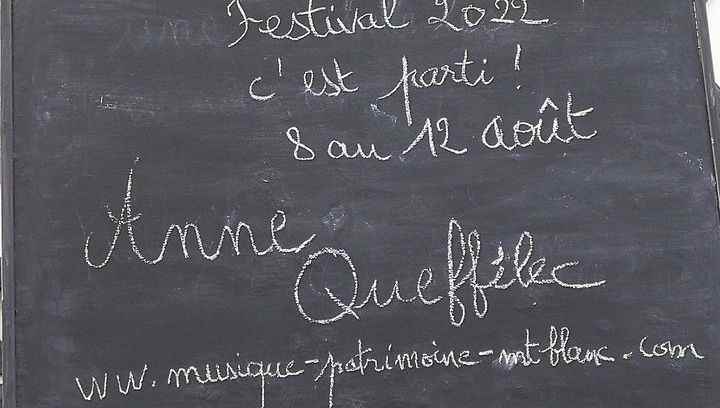 Festival 2022
c'est parti !
8 au 12 août
Anne
Queffélec
ww.musique-patrimoine-mt-blanc.com